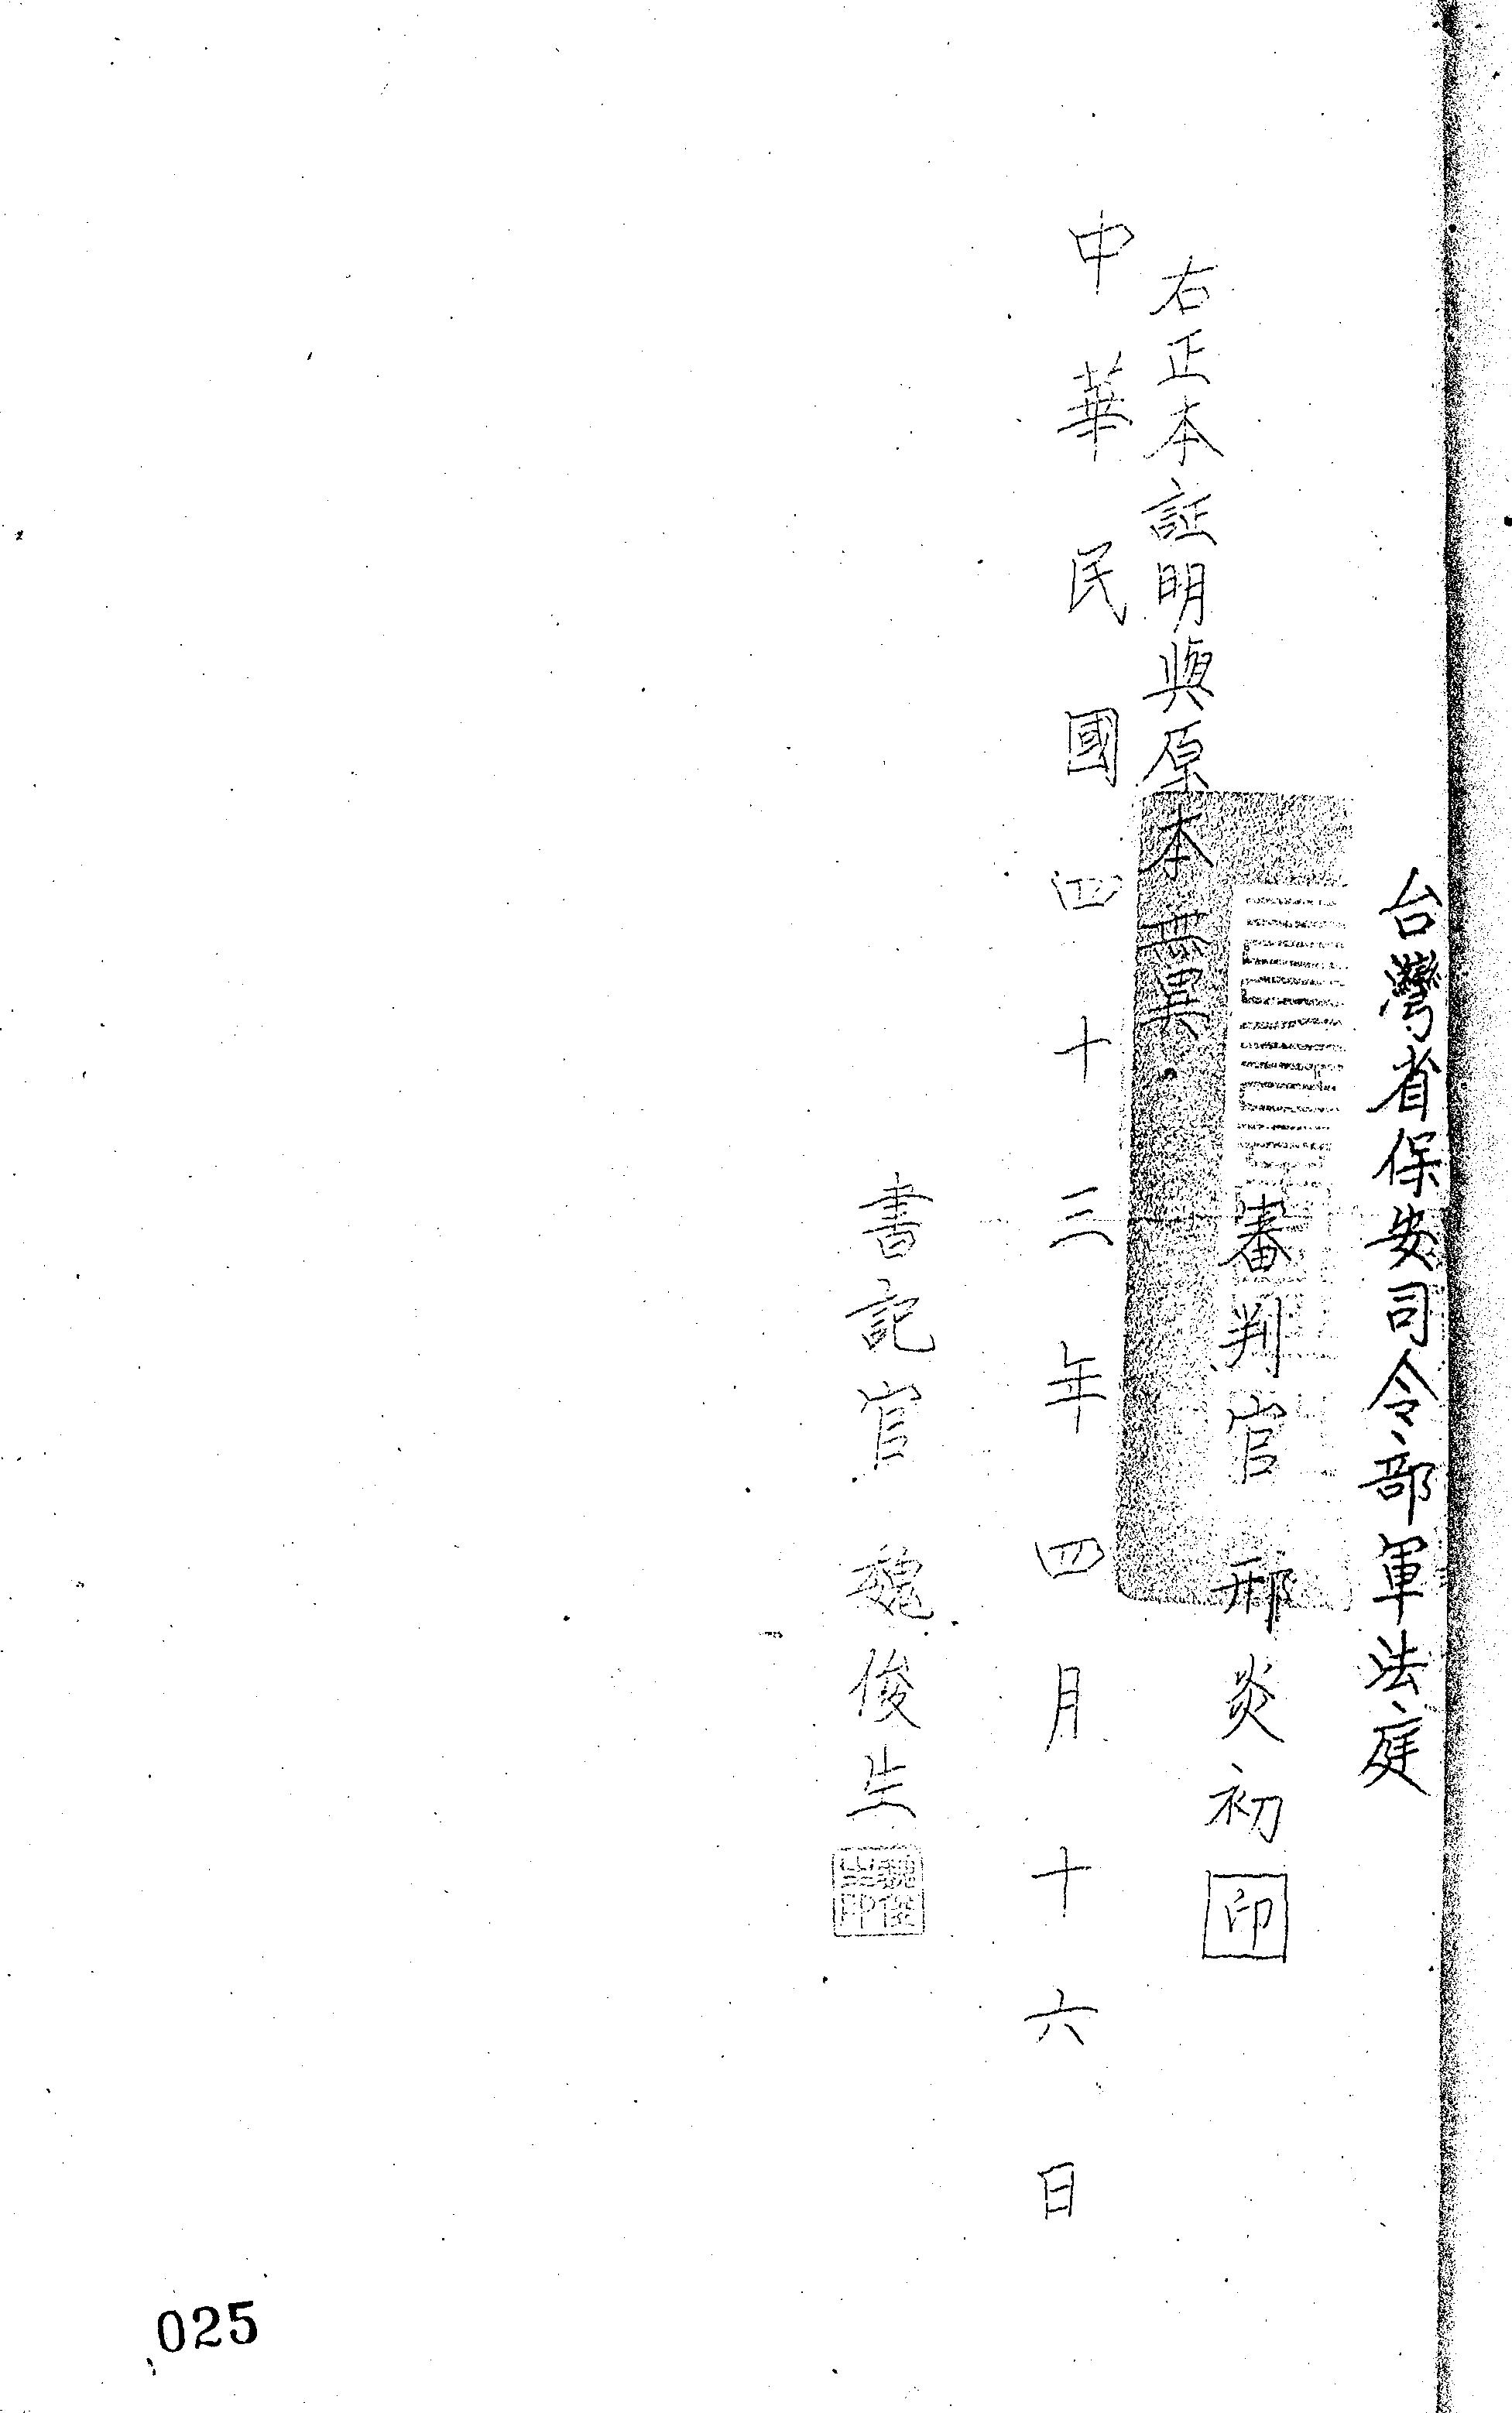 台灣省保安司令部軍法庭
審判官 邢炎初 印
右正本証明與原本無異
中華民國四十三年四月十六日
書記官 魏俊生
魏俊生印
025